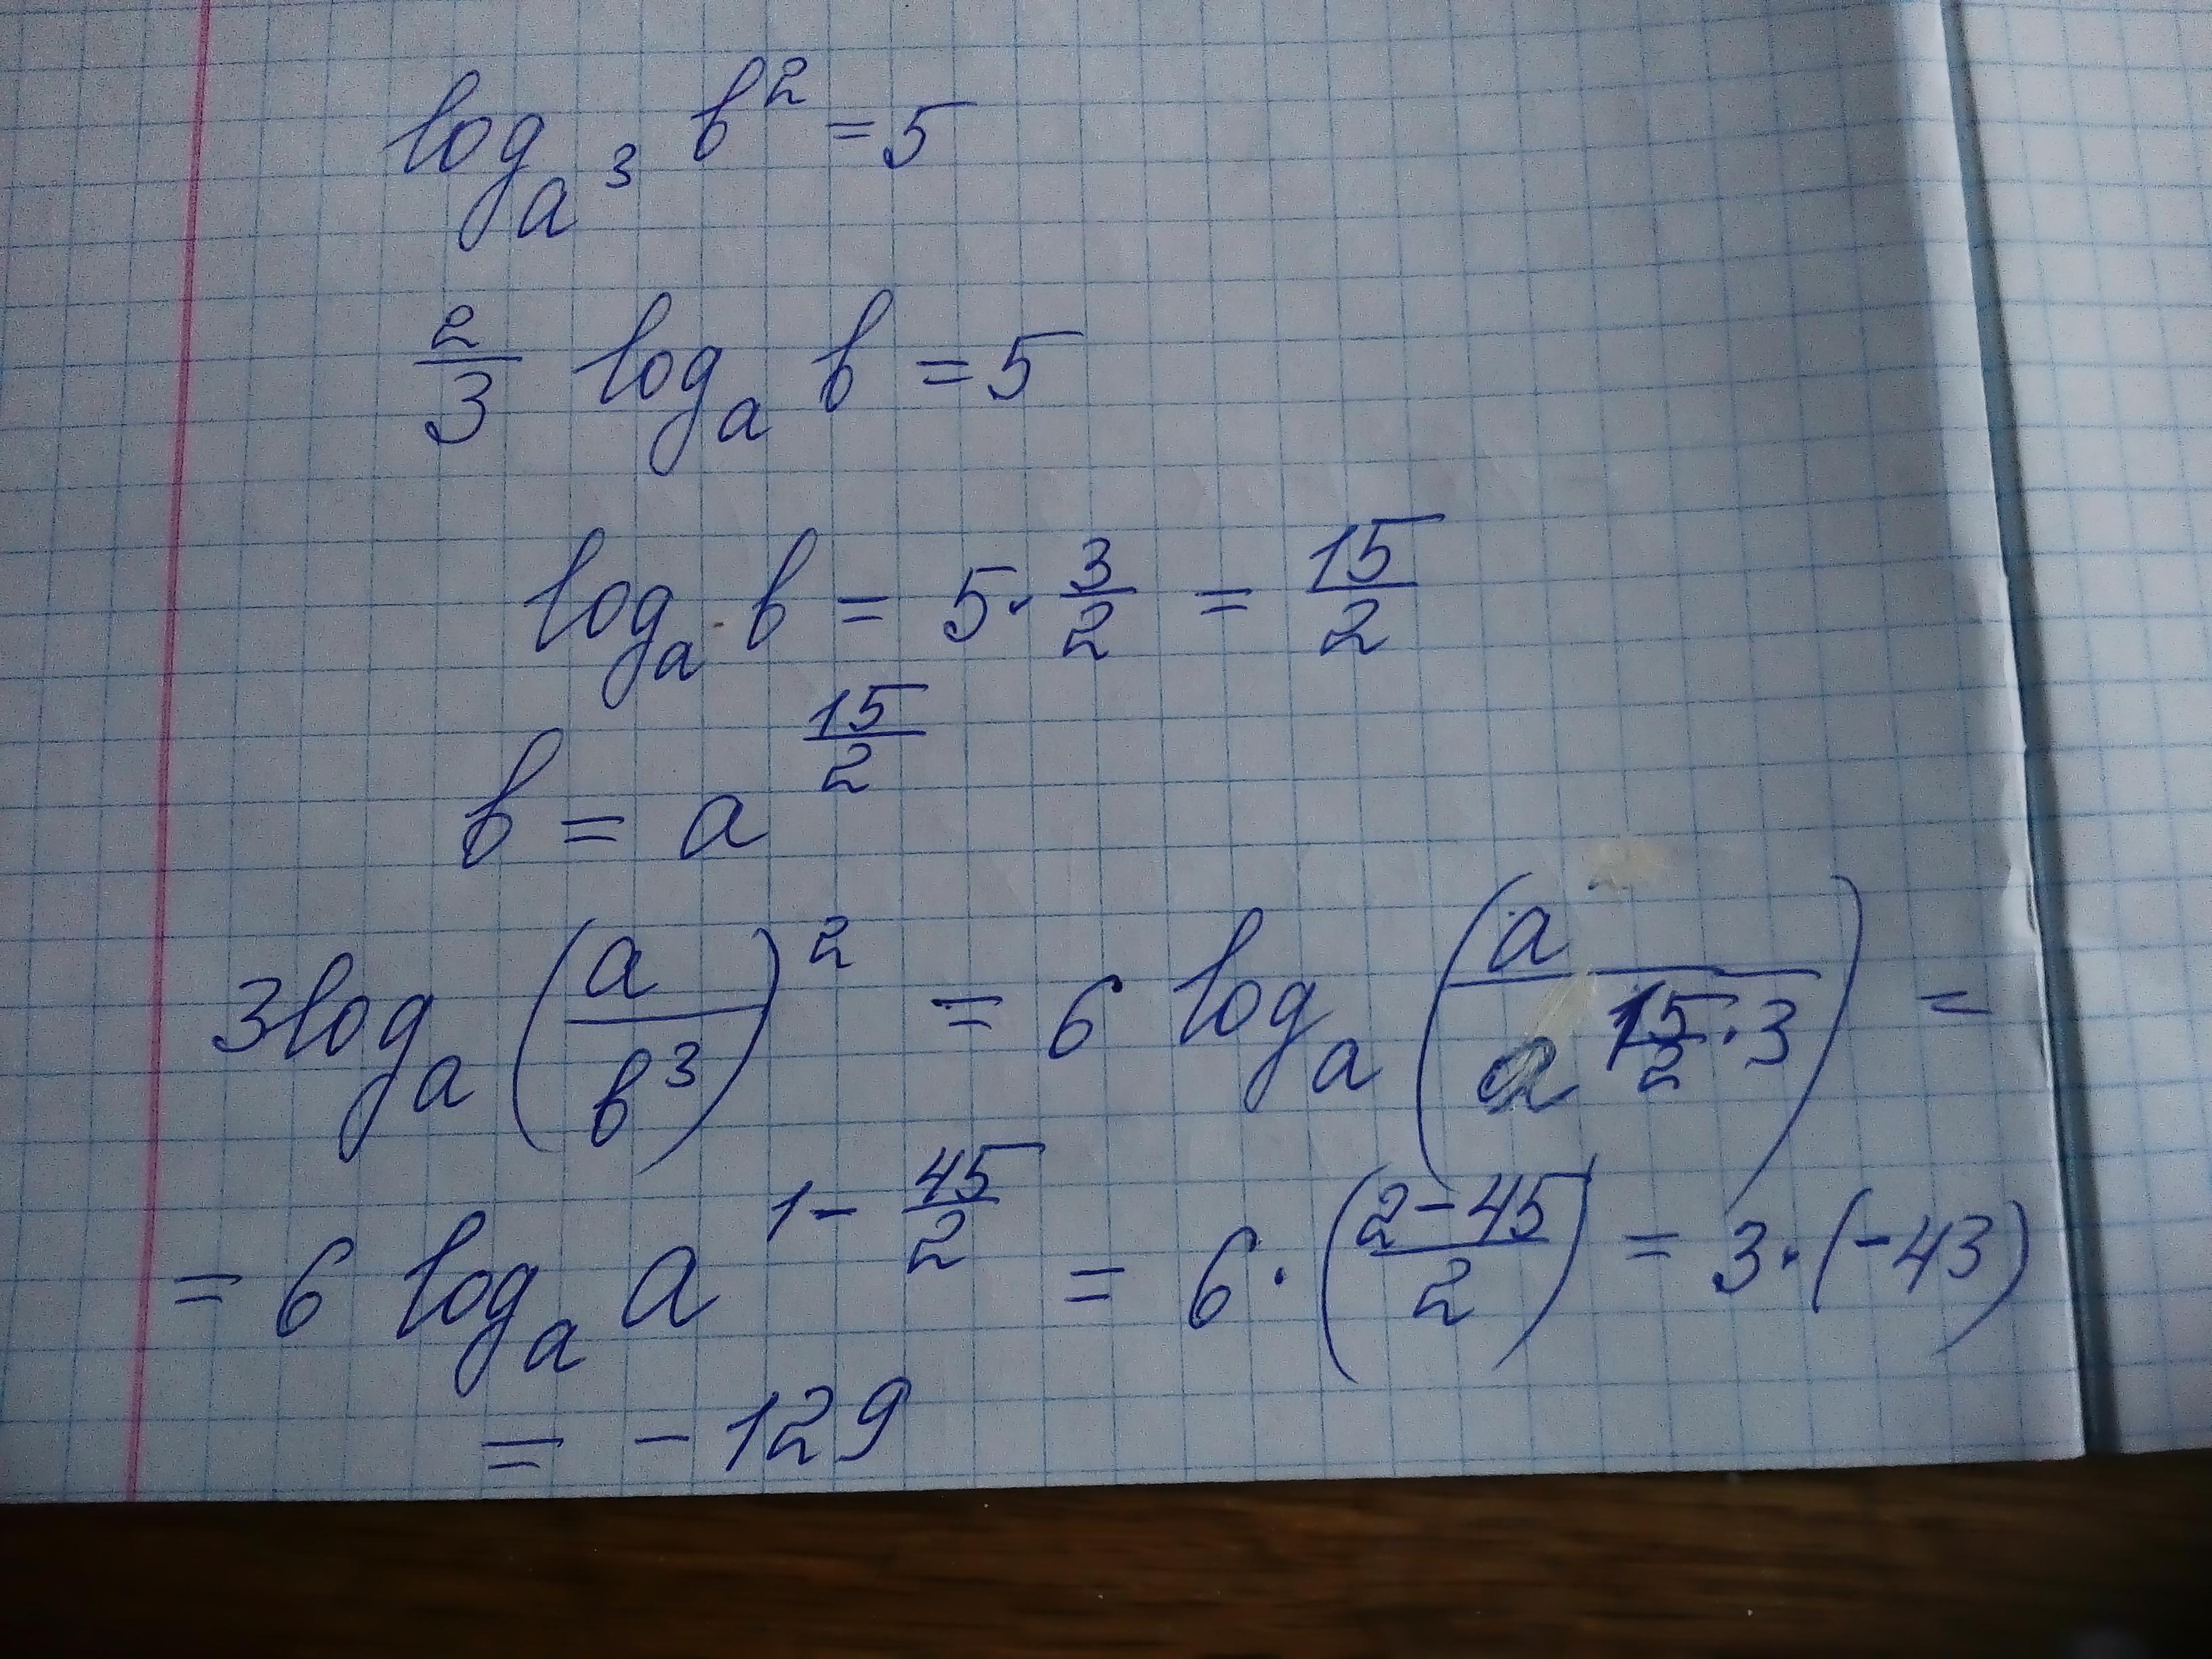 log_{a^3} b^2 = 5
\frac{2}{3} log_a b = 5
log_a b = 5 · \frac{3}{2} = \frac{15}{2}
b = a^{\frac{15}{2}}
3 log_a (\frac{a}{b^3})^2 = 6 log_a (\frac{a}{a^{\frac{15}{2} · 3}}) =
= 6 log_a a^{1 - \frac{45}{2}} = 6 · (\frac{2-45}{2}) = 3 · (-43)
= - 129